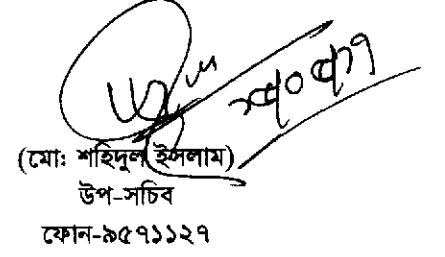 (মোঃ শহিদুল ইসলাম)
উপ-সচিব
ফোন-৯৫৭১১২৭